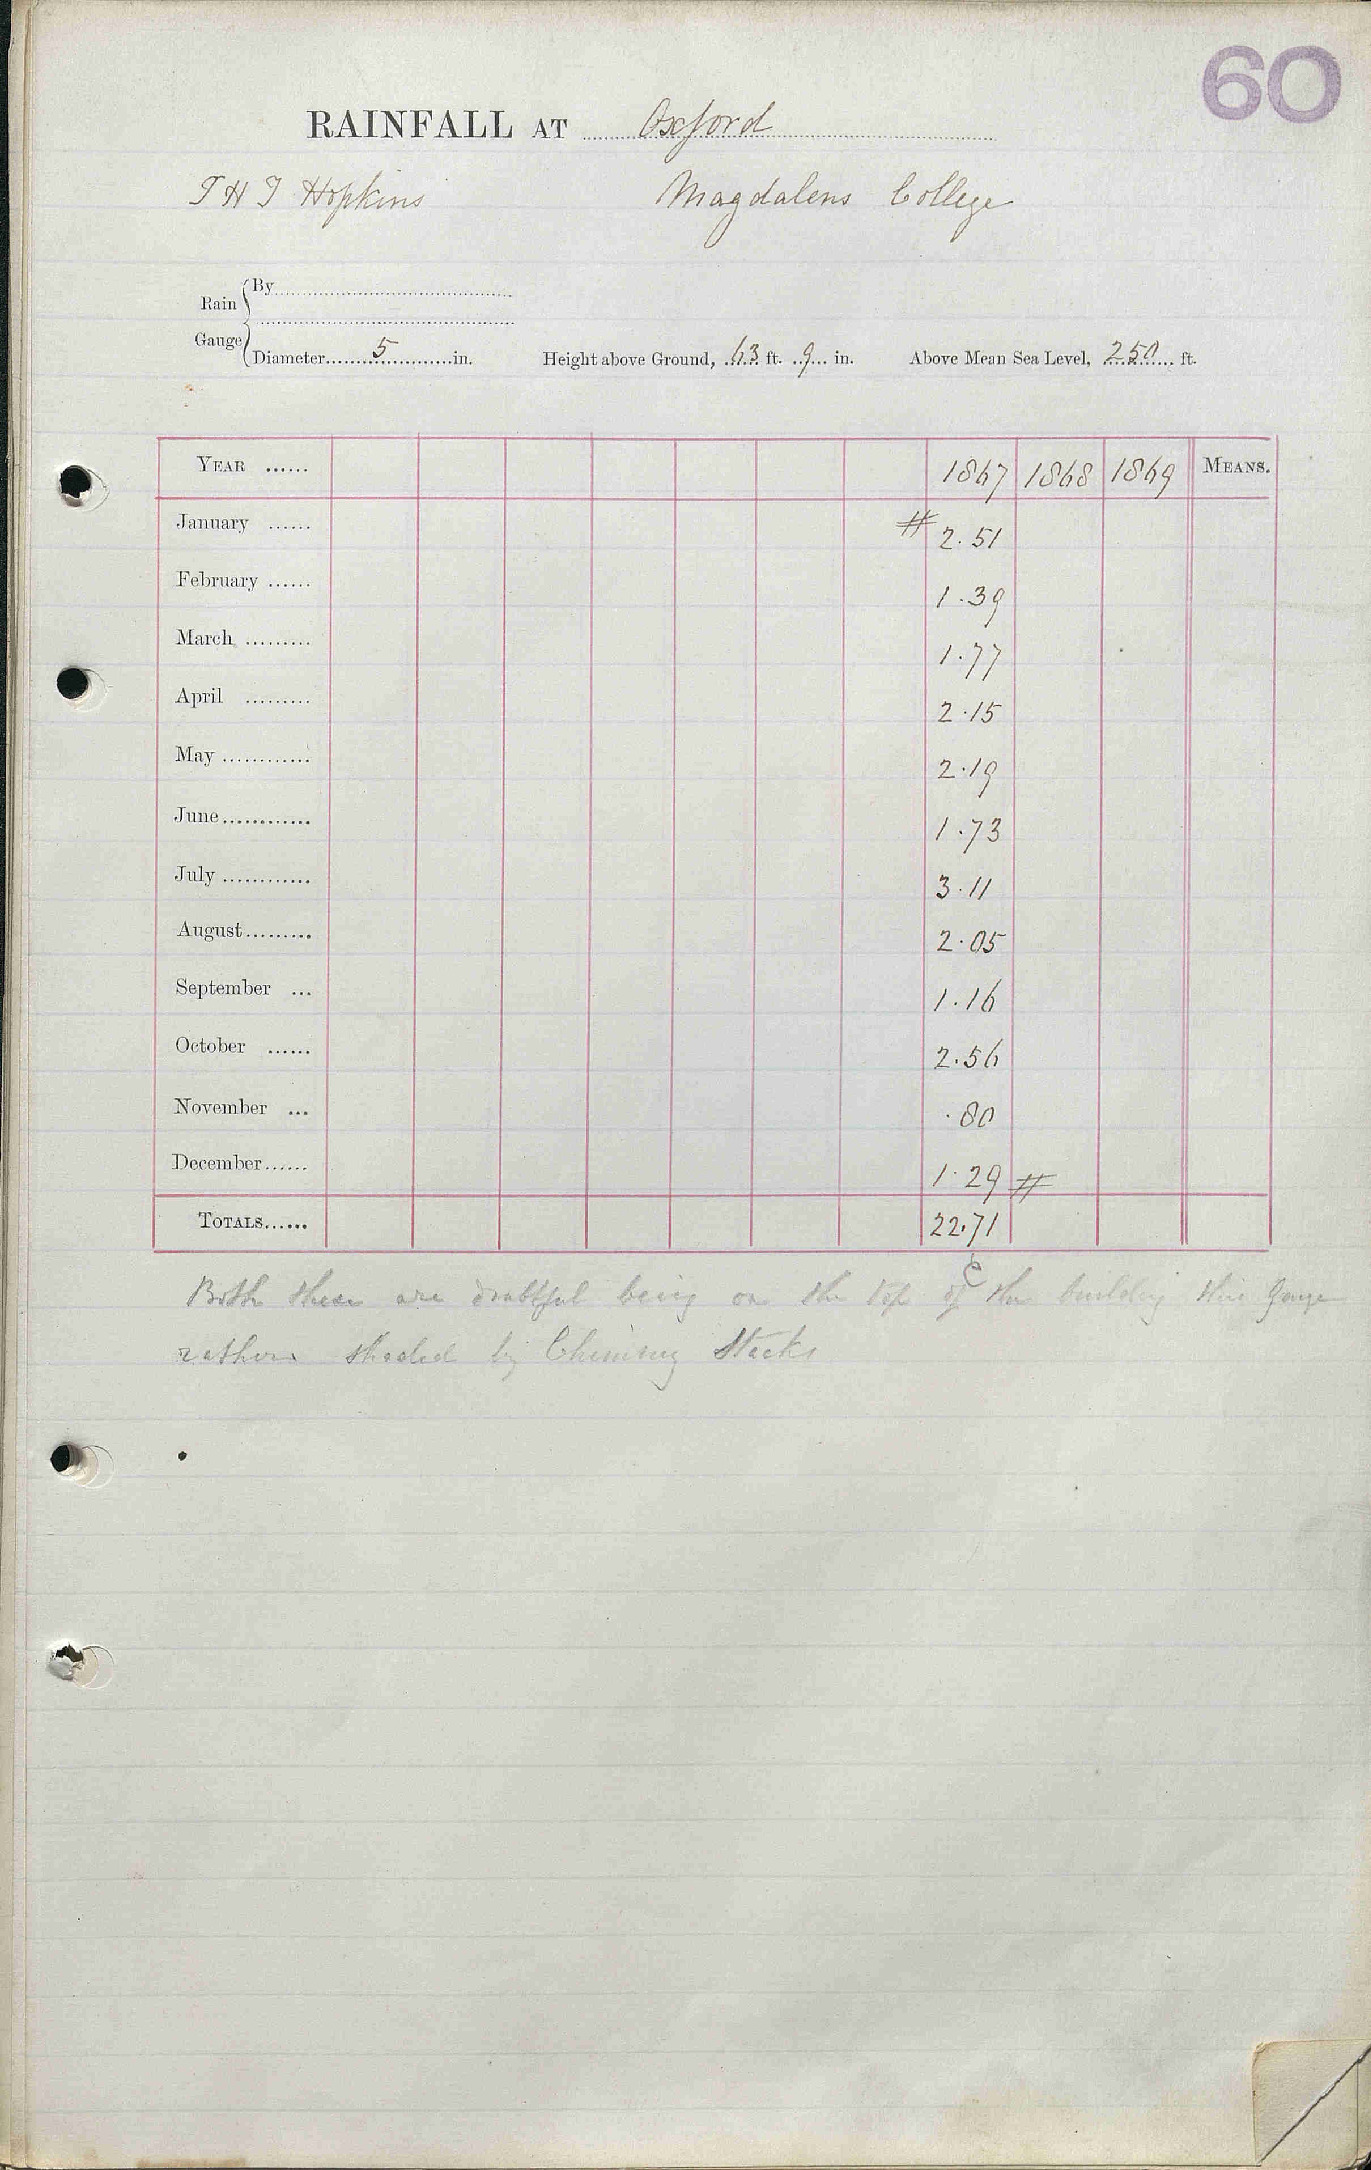 60
RAINFALL AT Oxford
T H T Hopkins Magdalens College
Rain Gauge
By
Diameter 5 in. Height above Ground, 63 ft. 9 in. Above Mean Sea Level, 250 ft.
YEAR ...... 1867 1868 1869 MEANS.
January ...... # 2.51
February ...... 1.39
March ......... 1.77
April ......... 2.15
May ............ 2.19
June ............ 1.73
July ............ 3.11
August ......... 2.05
September ... 1.16
October ...... 2.56
November ... .80
December ...... 1.29 #
TOTALS ...... 22.71
Both these are doubtful being on the top of the building this Gauge
rather shaded by Chimney Stacks